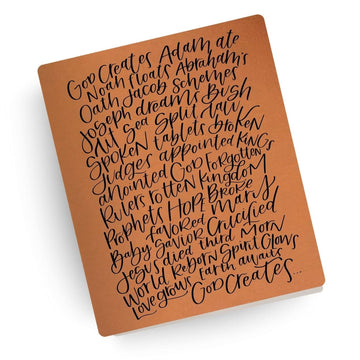 God Creates Adam ate
Noah floats Abraham's
Oath Jacob Schemes
Joseph dreams Bush
Sea Split Law
Spoken tablets Broken
Judges appointed Kings
anointed God Forgotten
Rulers rotten Kingdom
Broke
Prophets Hope Mary
favored
Baby Savior Crucified
Jesus died third Morn
World Reborn Spirit Glows
Love grows Earth awaits
God Creates...